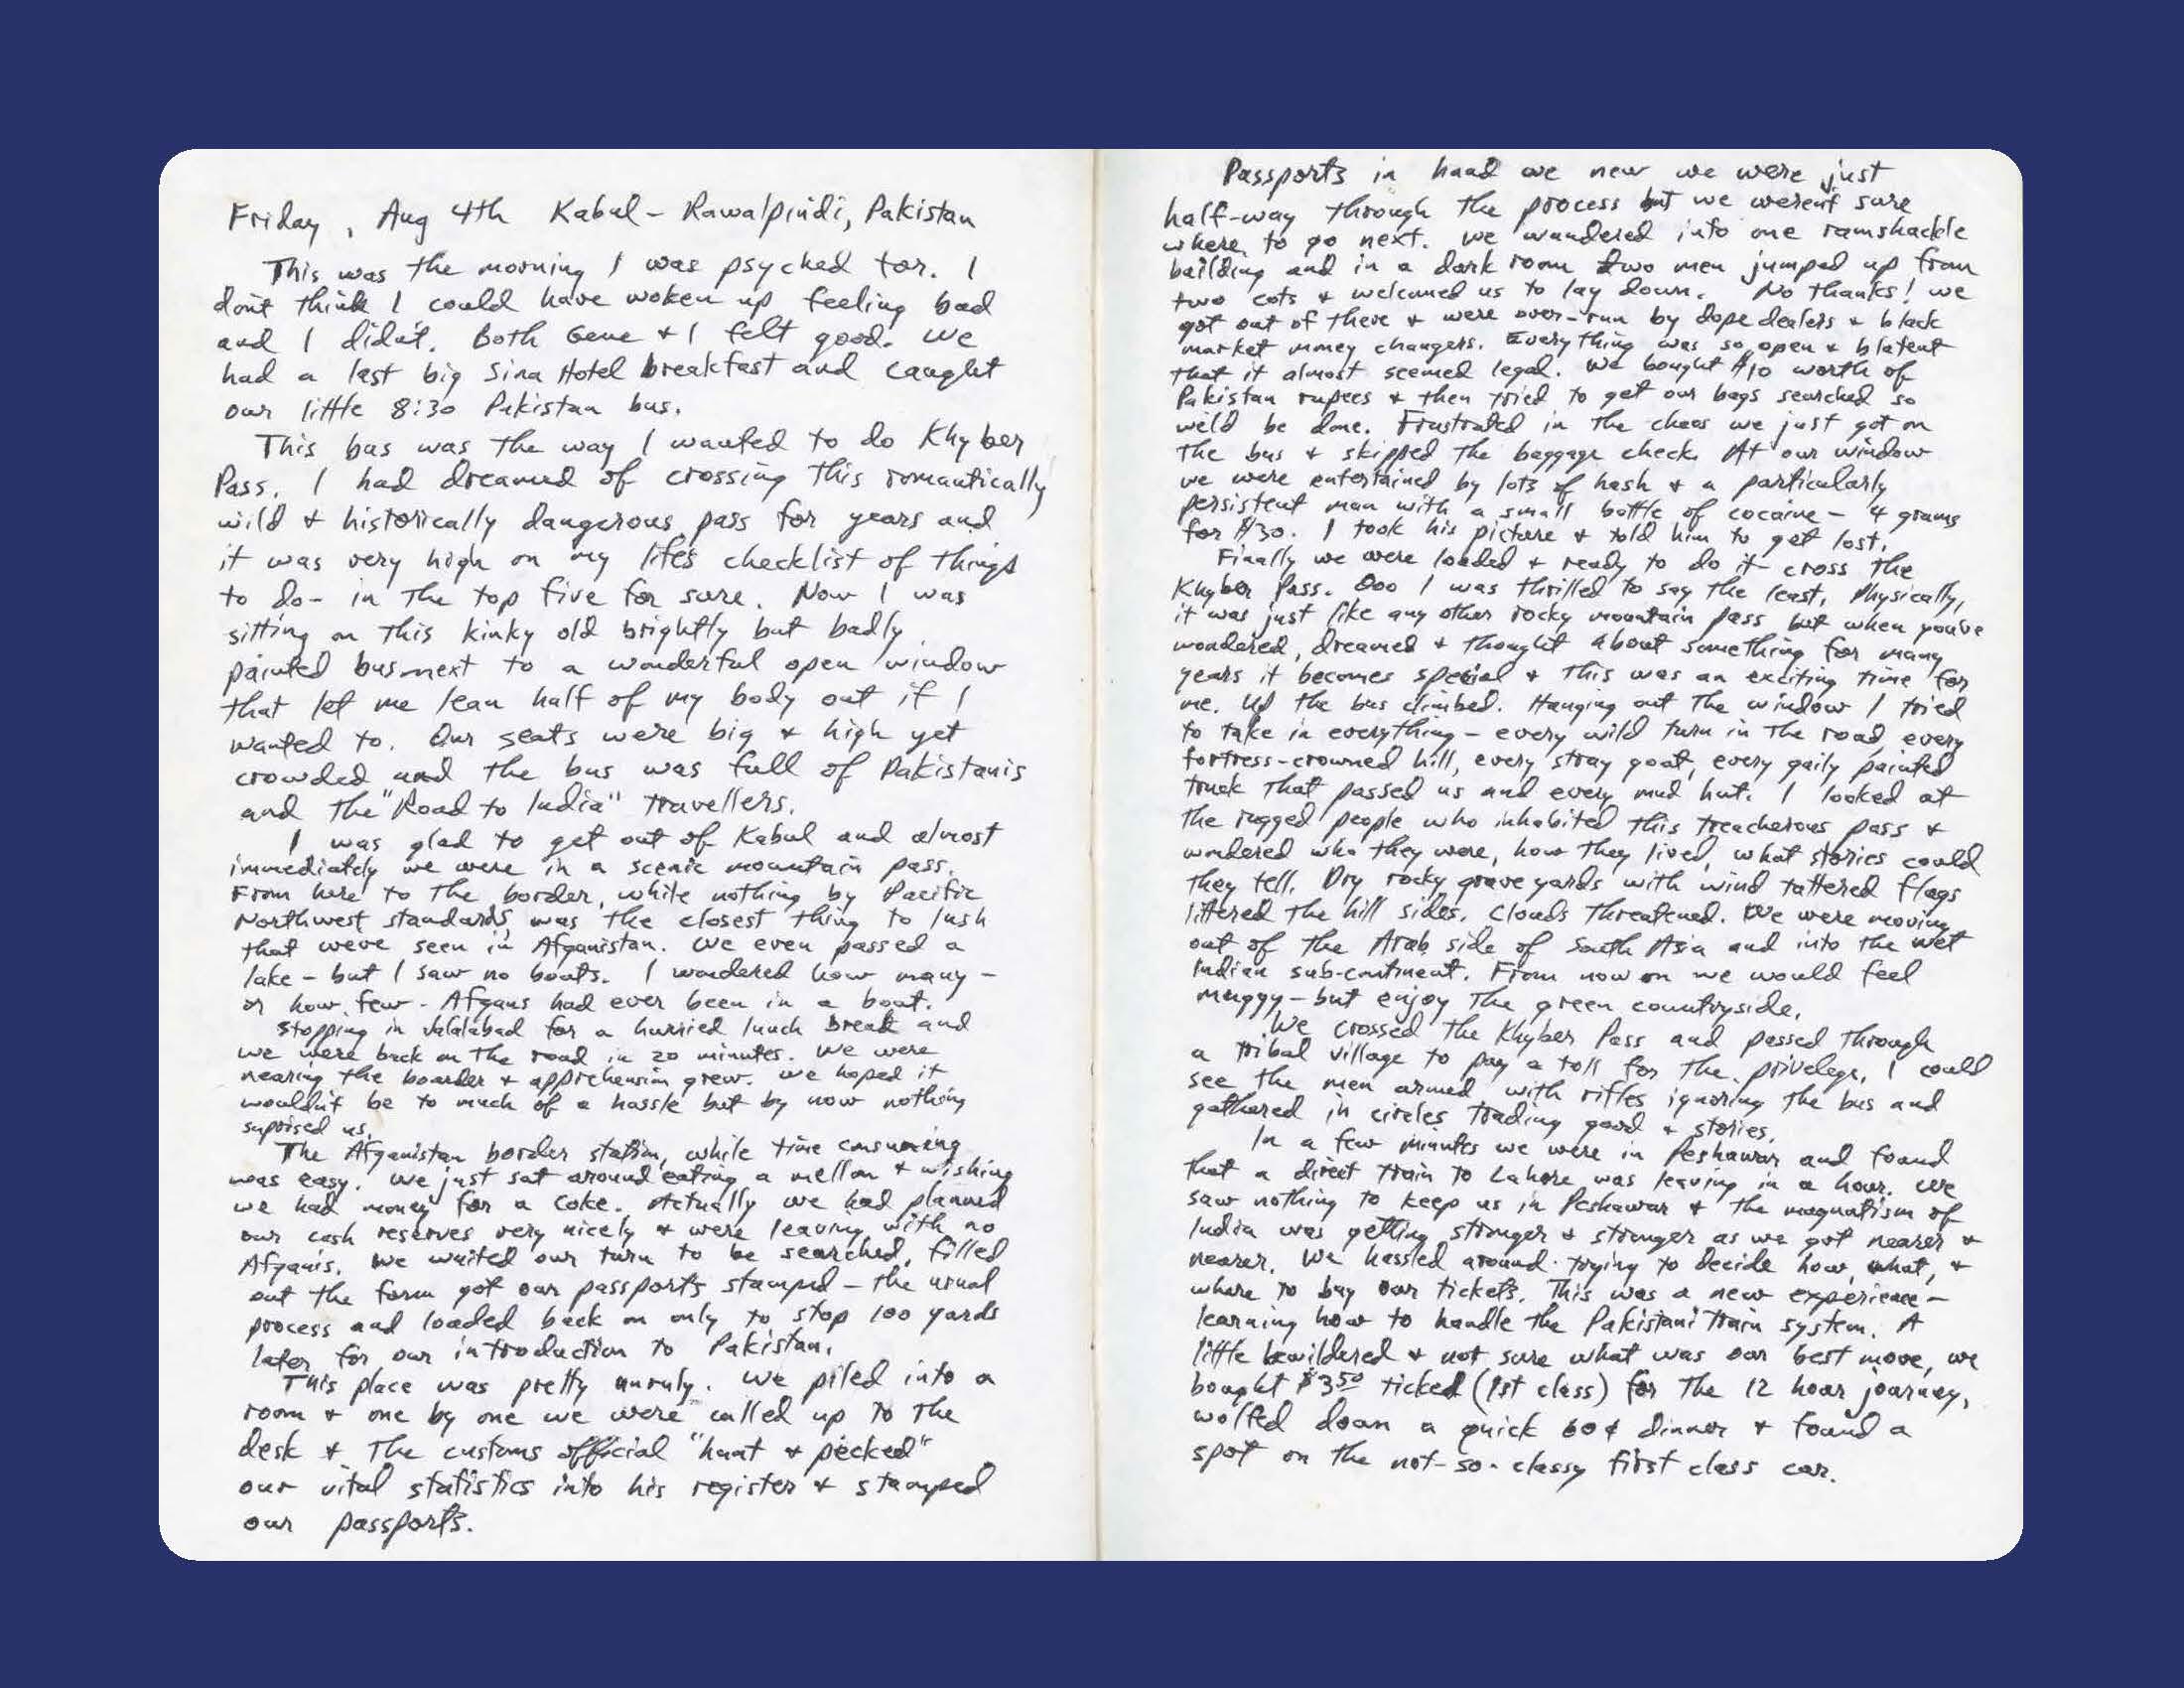 Friday, Aug 4th Kabul - Rawalpindi, Pakistan
This was the morning I was psyched for. I
don't think I could have woken up feeling bad
and I didn't. Both Gene + I felt good. We
had a last big Sina Hotel breakfast and caught
our little 8:30 Pakistan bus.
This bus was the way I wanted to do Khyber
Pass. I had dreamed of crossing this romantically
wild + historically dangerous pass for years and
it was very high on my life's checklist of things
to do - in the top five for sure. Now I was
sitting on this kinky old brightly but badly
painted bus next to a wonderful open window
that let me lean half of my body out if I
wanted to. Our seats were big + high yet
crowded and the bus was full of Pakistanis
and the "Road to India" travellers.
I was glad to get out of Kabul and almost
immediately we were in a scenic mountain pass.
From here to the border, while nothing by Pacific
Northwest standards, was the closest thing to lush
that weve seen in Afganistan. We even passed a
lake - but I saw no boats. I wondered how many -
or how few - Afgans had ever been in a boat.
Stopping in Jalalabad for a hurried lunch break and
we were back on the road in 20 minutes. We were
nearing the boarder + apprehension grew. We hoped it
wouldn't be to much of a hassle but by now nothing
suprised us.
The Afganistan border station, while time consuming
was easy. We just sat around eating a mellon + wishing
we had money for a Coke. Actually we had planned
our cash reserves very nicely + were leaving with no
Afganis. We waited our turn to be searched, filled
out the form got our passports stamped - the usual
process and loaded back on only to stop 100 yards
later for our introduction to Pakistan.
This place was pretty unruly. We piled into a
room + one by one we were called up to the
desk + the customs official "hunt + pecked"
our vital statistics into his register + stamped
our passports.
Passports in hand we new we were just
half-way through the process but we weren't sure
where to go next. We wandered into one ramshackle
building and in a dark room two men jumped up from
two cots + welcomed us to lay down. No thanks! We
got out of there + were over-run by dope dealers + black
market money changers. Everything was so open + blatent
that it almost seemed legal. We bought $10 worth of
Pakistan rupees + then tried to get our bags searched so
we'd be done. Frustrated in the chaos we just got on
the bus + skipped the baggage check. At our window
we were entertained by lots of hash + a particularly
persistent man with a small bottle of cocaine - 4 grams
for $30. I took his picture + told him to get lost.
Finally we were loaded + ready to do it - cross the
Khyber Pass. Ooo I was thrilled to say the least. Physically,
it was just like any other rocky mountain pass but when you've
wondered, dreamed + thought about something for many
years it becomes special + this was an exciting time for
me. Up the bus climbed. Hanging out the window I tried
to take in everything - every wild turn in the road, every
fortress-crowned hill, every stray goat, every gaily painted
truck that passed us and every mud hut. I looked at
the rugged people who inhabited this treacherous pass +
wondered who they were, how they lived, what stories could
they tell. Dry rocky graveyards with wind tattered flags
littered the hill sides. Clouds threatened. We were moving
out of the Arab side of South Asia and into the wet
Indian sub-continent. From now on we would feel
muggy - but enjoy the green countryside.
We crossed the Khyber Pass and passed through
a tribal village to pay a toll for the privelege. I could
see the men armed with rifles ignoring the bus and
gathered in circles trading good + stories.
In a few minutes we were in Peshawar and found
that a direct train to Lahore was leaving in a hour. We
saw nothing to keep us in Peshawar + the magnatism of
India was getting stronger + stronger as we got nearer +
nearer. We hassled around trying to decide how, what, +
where to buy our tickets. This was a new experience -
learning how to handle the Pakistani train system. A
little bewildered + not sure what was our best move, we
bought $3.50 ticked (1st class) for the 12 hour journey,
wolfed down a quick 60¢ dinner + found a
spot on the not-so-classy first class car.